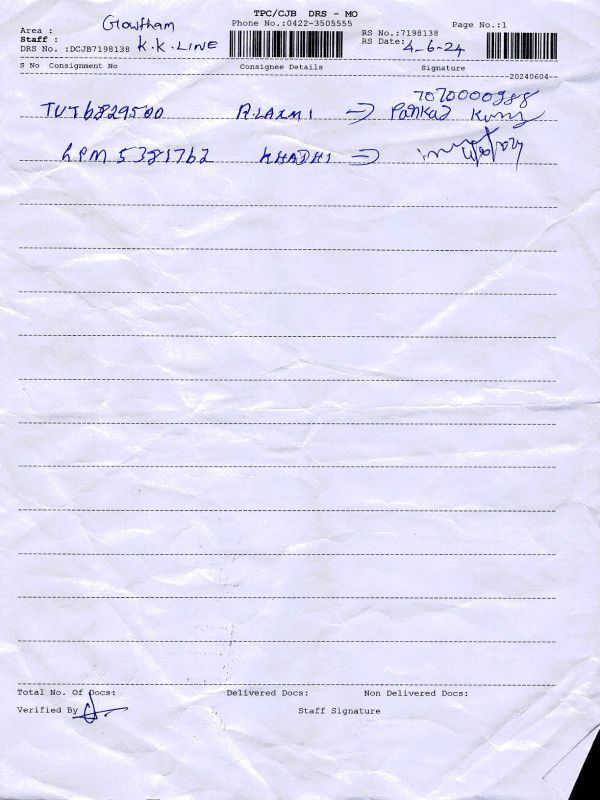 TPC/CJB DRS - MO
Phone No.:0422-3505555
Page No.:1
Area : Gowtham
Staff : K.K.LINE
DRS No. :DCJB7198138
RS No.:7198138
RS Date: 4-6-24
S No Consignment No Consignee Details Signature
20240604
7070000988
TUT6829500 R.LAXMI → Pankaj
LPM 5381762 KHADHI →
Total No. Of Docs: Delivered Docs: Non Delivered Docs:
Verified By Staff Signature